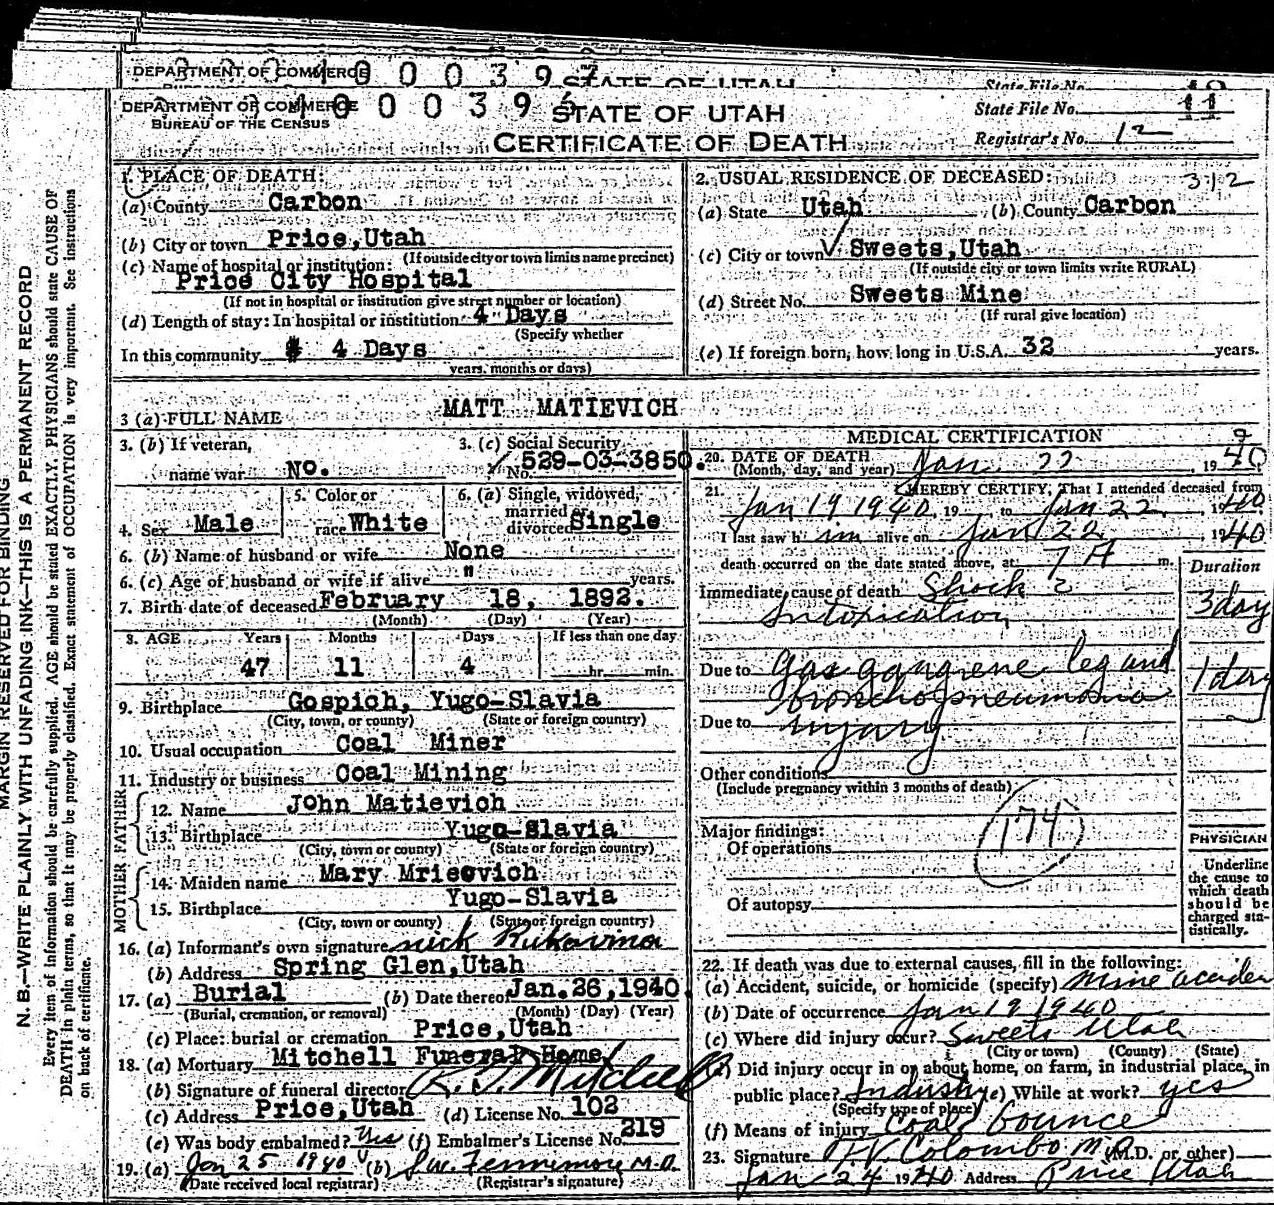 DEPARTMENT OF COMMERCE 0 0 0 3 9 7 STATE OF UTAH State File No. 10
DEPARTMENT OF COMMERCE 0 0 0 3 9 STATE OF UTAH State File No. 11
BUREAU OF THE CENSUS CERTIFICATE OF DEATH Registrar's No. 12
1. PLACE OF DEATH:
(a) County Carbon
(b) City or town Price,Utah
(If outside city or town limits name precinct)
(c) Name of hospital or institution:
Price City Hospital
(If not in hospital or institution give street number or location)
(d) Length of stay: In hospital or institution 4 Days
(Specify whether
In this community 4 Days
years, months or days)
2. USUAL RESIDENCE OF DECEASED: 312
(a) State Utah (b) County Carbon
(c) City or town Sweets,Utah
(If outside city or town limits write RURAL)
(d) Street No. Sweets Mine
(If rural give location)
(e) If foreign born, how long in U.S.A. 32 years.
3 (a) FULL NAME MATT MATIEVICH
3. (b) If veteran, 3. (c) Social Security
name war No. No. 529-03-3850.
4. Sex Male 5. Color or race White 6. (a) Single, widowed, married or divorced Single
6. (b) Name of husband or wife None
6. (c) Age of husband or wife if alive " years.
7. Birth date of deceased February 18, 1892.
(Month) (Day) (Year)
8. AGE Years Months Days If less than one day
47 11 4 hr. min.
9. Birthplace Gospich, Yugo-Slavia
(City, town, or county) (State or foreign country)
10. Usual occupation Coal Miner
11. Industry or business Coal Mining
FATHER
12. Name John Matievich
13. Birthplace Yugo-Slavia
(City, town or county) (State or foreign country)
MOTHER
14. Maiden name Mary Mrisovich
15. Birthplace Yugo-Slavia
(City, town or county) (State or foreign country)
16. (a) Informant's own signature nick Rukavina
(b) Address Spring Glen,Utah
17. (a) Burial (b) Date thereof Jan.26,1940.
(Burial, cremation, or removal) (Month) (Day) (Year)
(c) Place: burial or cremation Price,Utah
18. (a) Mortuary Mitchell Funeral Home
(b) Signature of funeral director R. J. Mitchell
(c) Address Price,Utah (d) License No. 102
(e) Was body embalmed? Yes (f) Embalmer's License No. 219
19. (a) Jan 25 1940 (b) J.W. Fennemore M.D.
(Date received local registrar) (Registrar's signature)
MEDICAL CERTIFICATION
20. DATE OF DEATH
(Month, day, and year) Jan. 22, 1940
21. I HEREBY CERTIFY, That I attended deceased from
Jan 19 1940, 19 to Jan 22, 1940
I last saw h im alive on Jan 22, 1940
death occurred on the date stated above, at 7 A m.
Duration
Immediate cause of death Shock &
Intoxication 3 day
Due to Gas gangrene leg and
bronchopneumonia 1 day
Due to injury
Other conditions
(Include pregnancy within 3 months of death)
174
Major findings:
Of operations
Of autopsy
PHYSICIAN
Underline
the cause to
which death
should be
charged sta-
tistically.
22. If death was due to external causes, fill in the following:
(a) Accident, suicide, or homicide (specify) Mine acciden
(b) Date of occurrence Jan 19 1940
(c) Where did injury occur? Sweets Utah
(City or town) (County) (State)
(d) Did injury occur in or about home, on farm, in industrial place, in
public place? Industry (e) While at work? yes
(Specify type of place)
(f) Means of injury Coal bounce
23. Signature Colombo M.D. (M.D. or other)
Jan 24 1940 Address Price Utah
MARGIN RESERVED FOR BINDING
N. B.—WRITE PLAINLY WITH UNFADING INK—THIS IS A PERMANENT RECORD
Every item of information should be carefully supplied. AGE should be stated EXACTLY. PHYSICIANS should state CAUSE OF
DEATH in plain terms, so that it may be properly classified. Exact statement of OCCUPATION is very important. See instructions
on back of certificate.